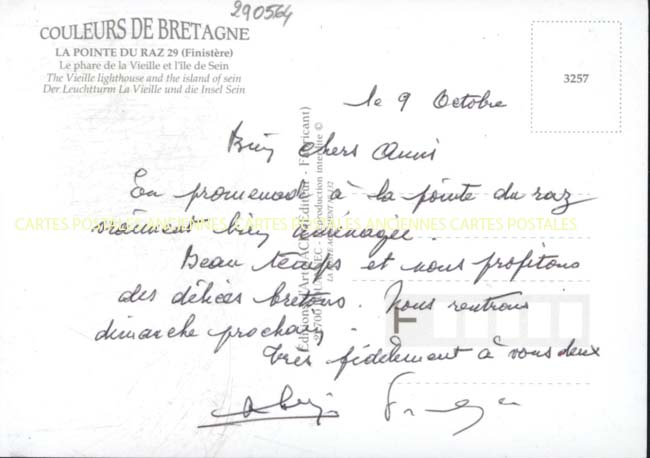 290564
COULEURS DE BRETAGNE
LA POINTE DU RAZ 29 (Finistère)
Le phare de la Vieille et l'île de Sein
The Vieille lighthouse and the island of sein
Der Leuchtturm La Vieille und die Insel Sein
3257
le 9 Octobre
Bien chers Amis
En promenade à la pointe du raz
vraiment bien aménagée.
Beau temps et nous profitons
des délices bretons. Nous rentrons
dimanche prochain.
très fidèlement à vous deux
CARTES POSTALES ANCIENNES CARTES POSTALES ANCIENNES CARTES POSTALES
Reproduction interdite ©
F